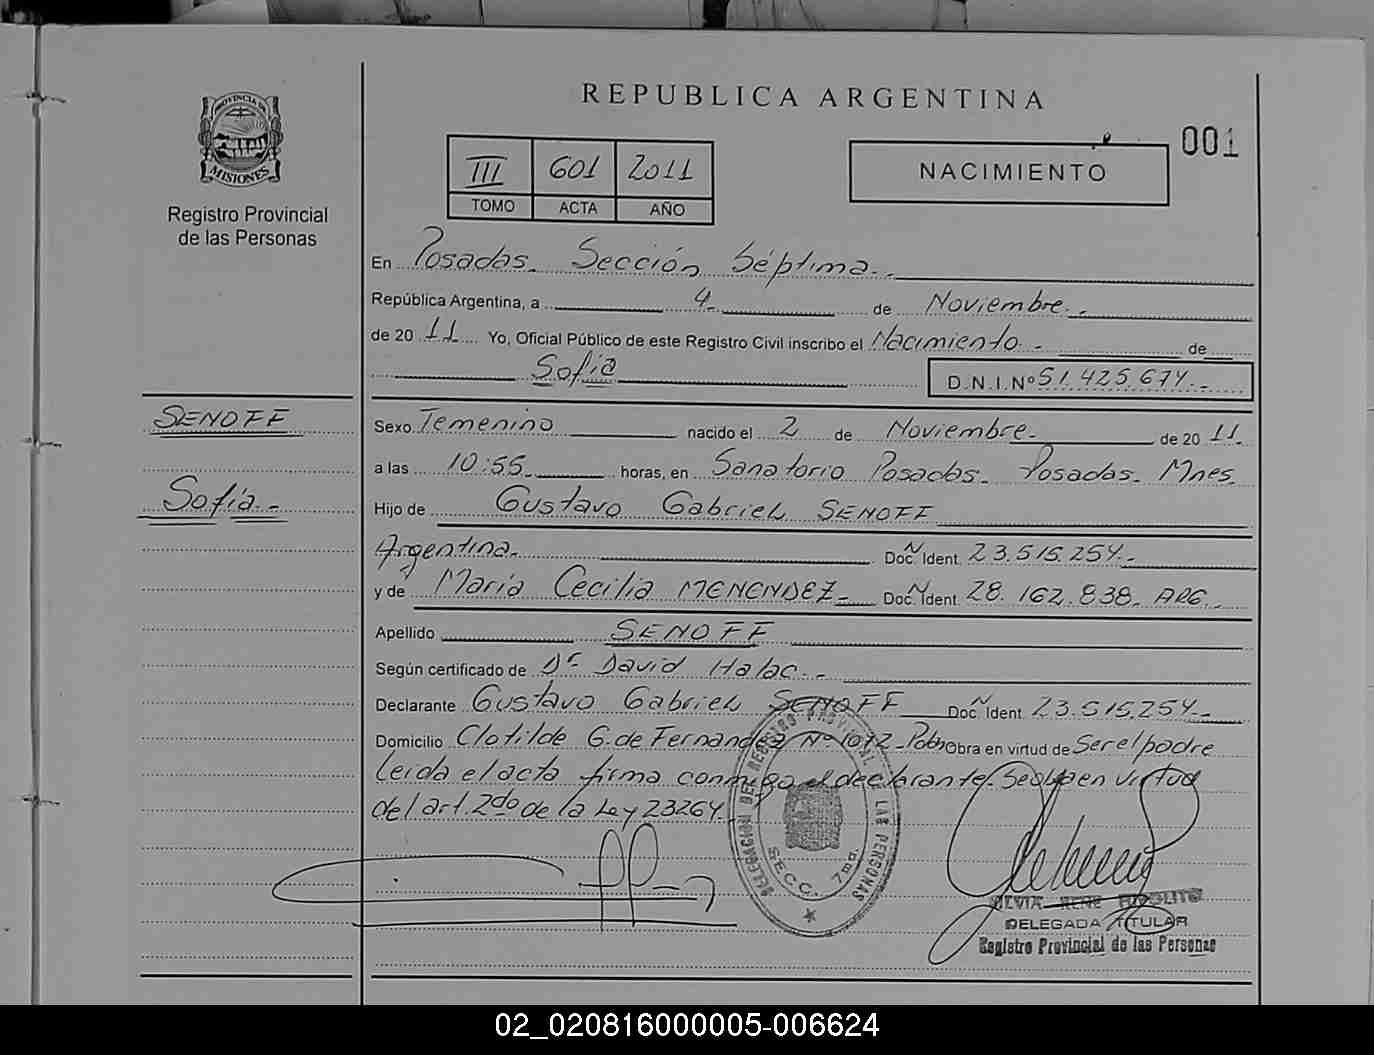 REPUBLICA ARGENTINA
PROVINCIA DE
MISIONES
Registro Provincial
de las Personas
III 601 2011
TOMO ACTA AÑO
NACIMIENTO
001
En Posadas. Sección Séptima.
República Argentina, a 4 de Noviembre.
de 2011 Yo, Oficial Público de este Registro Civil inscribo el Nacimiento. de
Sofía
D.N.I.Nº 51.425.674.-
SENOFF
Sofía.-
Sexo Femenino nacido el 2 de Noviembre. de 2011.
a las 10:55 horas, en Sanatorio Posadas. Posadas. Mnes.
Hijo de Gustavo Gabriel SENOFF
Argentina. Doc. Ident. Nº 23.515.254.-
y de María Cecilia MENENDEZ Doc. Ident. Nº 28.162.838. ARG.
Apellido SENOFF
Según certificado de Dr David Halac.-
Declarante Gustavo Gabriel SENOFF Doc. Ident. Nº 23.515.254
Domicilio Clotilde G. de Fernandez Nº 1072 - Pdas Obra en virtud de Ser el padre
leida el acta firma conmigo el declarante. en virtud
del art. 2do de la Ley 23264.
DELEGACION DEL REGISTRO PROVINCIAL DE LAS PERSONAS
SECC. 7ma.
SILVIA RENE HIPOLITO
DELEGADA TITULAR
Registro Provincial de las Personas
02_020816000005-006624